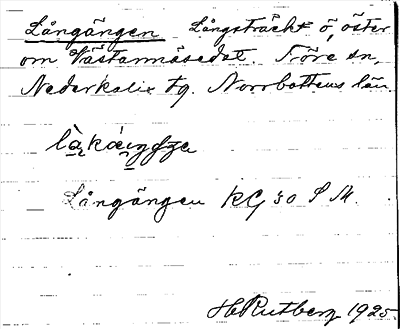 Långängen Långsträckt ö, öster
om Västannäsedet. Töre sn,
Nederkalix tg. Norrbottens län.
Långängen KG 30 S M.
H Rutberg 1925